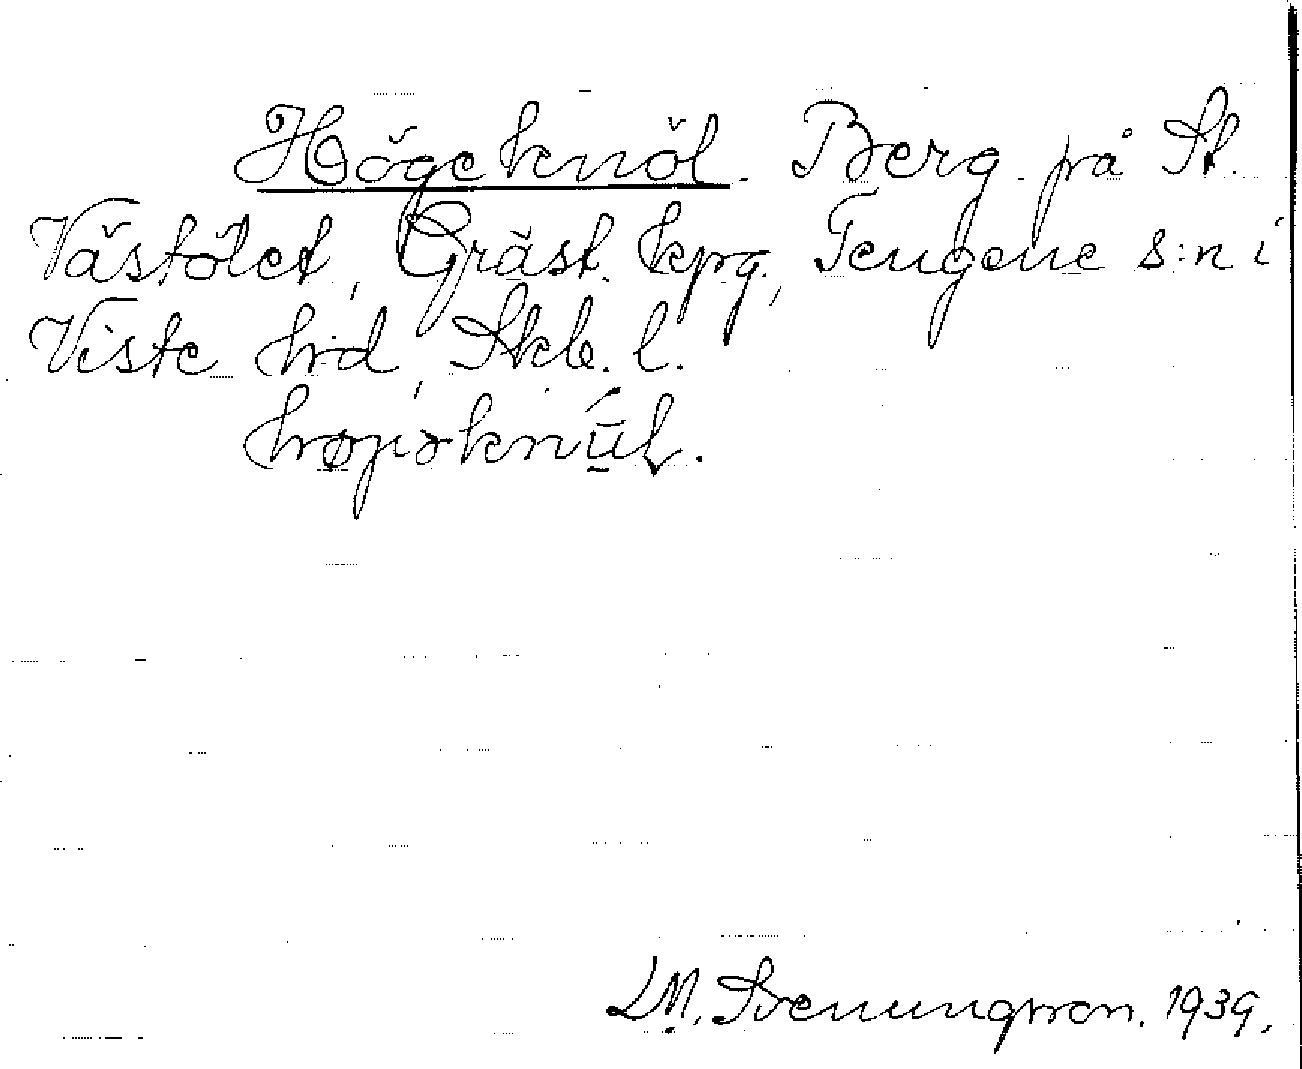 Högeknöl. Berg på St.
Västölet, Gräst. kpg., Tengene s:n i
Viste hrd, Skb. l.
høpəknül.
L M. Svenungsson. 1939.